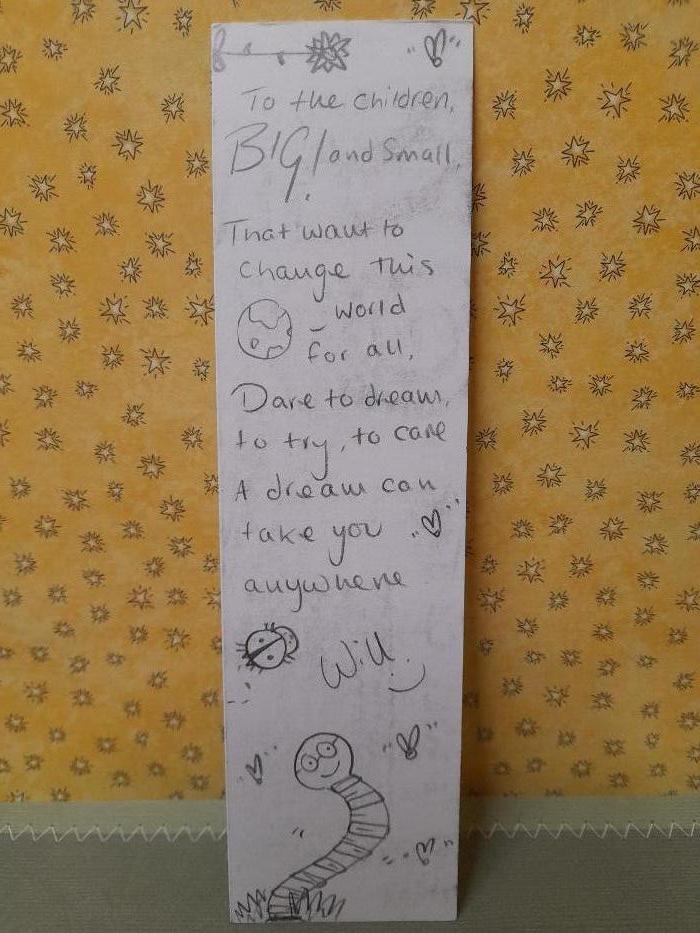 To the children,
BIG! and Small,
That want to
change this
world
for all,
Dare to dream,
to try, to care
A dream can
take you
anywhere
Will